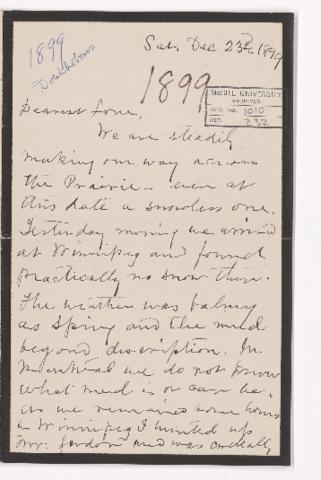 1899
Doukhobors
Sat. Dec 23rd 1899
1899
McGILL UNIVERSITY
ARCHIVES
ACC. NO. 1010
REF. 232
Dearest Love,
We are steadily
making our way across
the Prairie - even at
this date a snowless one.
Yesterday morning we arrived
at Winnipeg and found
practically no snow there.
The weather was balmy
as Spring and the mud
beyond description. In
Montreal we do not know
what mud is or can be.
As we remained some hours
in Winnipeg I hunted up
Mr. Gordon and was cordially